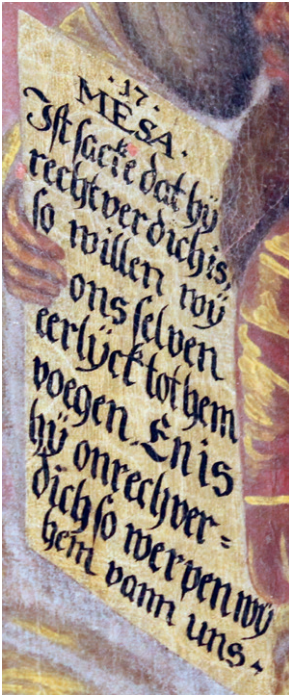 ·17·
MESA·
Ist sacke dat hÿ
rechtverdich is,
so willen wÿ
ons selven
eerlÿck tot hem
voegen. En is
hÿ onrechver=
dich so werpen wÿ
hem vann uns·